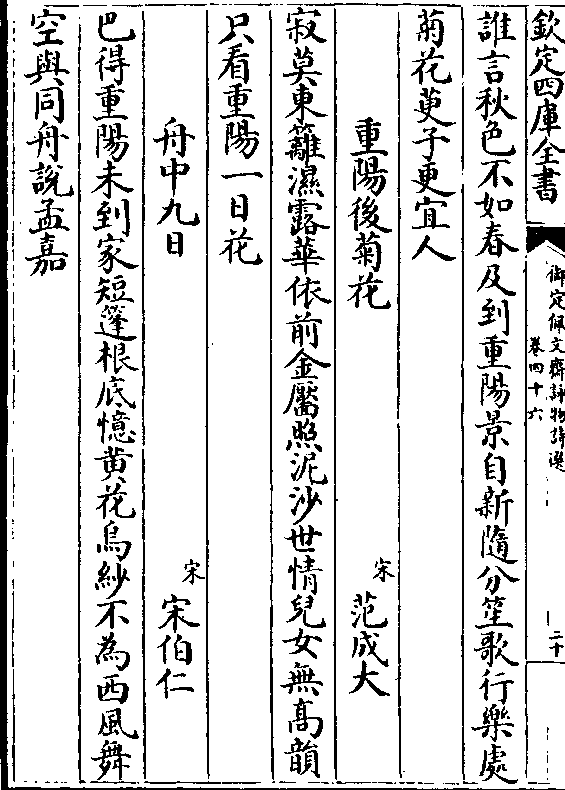 欽定四庫全書
御定佩文齋詠物詩選
卷四十六
二十
誰言秋色不如春及到重陽景自新隨分笙歌行樂處
菊花萸子更宜人
重陽後菊花
宋
范成大
寂莫東籬濕露華依前金靨照泥沙世情兒女無高韻
只看重陽一日花
舟中九日
宋
宋伯仁
巴得重陽未到家短篷根底憶黄花烏紗不為西風舞
空與同舟說孟嘉